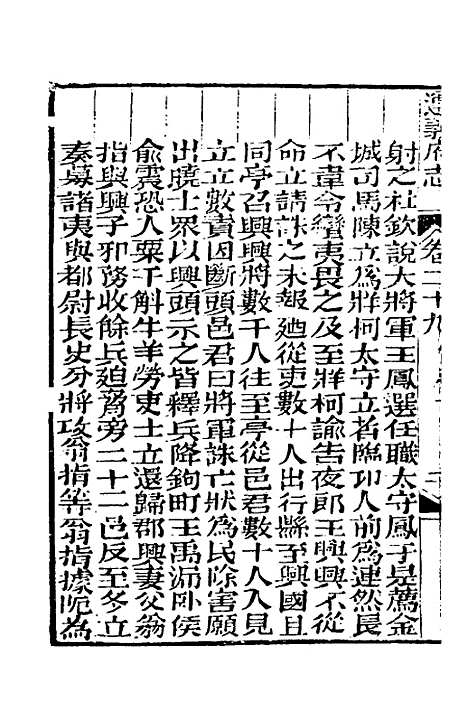 遵義府志
卷二十九
射之杜欽說大將軍王鳳選任職太守鳳于是薦金
城司馬陳立爲牂柯太守立者臨邛人前爲連然長
不韋令蠻夷畏之及至牂柯諭告夜郎王興興不從
命立請誅之未報廼從吏數十人出行縣至興國且
同亭召興興將數千人往至亭從邑君數十人入見
立立數責因斷頭邑君曰將軍誅亡狀爲民除害願
出曉士眾以興頭示之皆釋兵降鉤町王禹漏卧侯
俞震恐入粟千斛牛羊勞吏士立還歸郡興妻父翁
指與興子邪務收餘兵廹脅旁二十二邑反至冬立
奏募諸夷與都尉長史分將攻翁指等翁指據阸爲